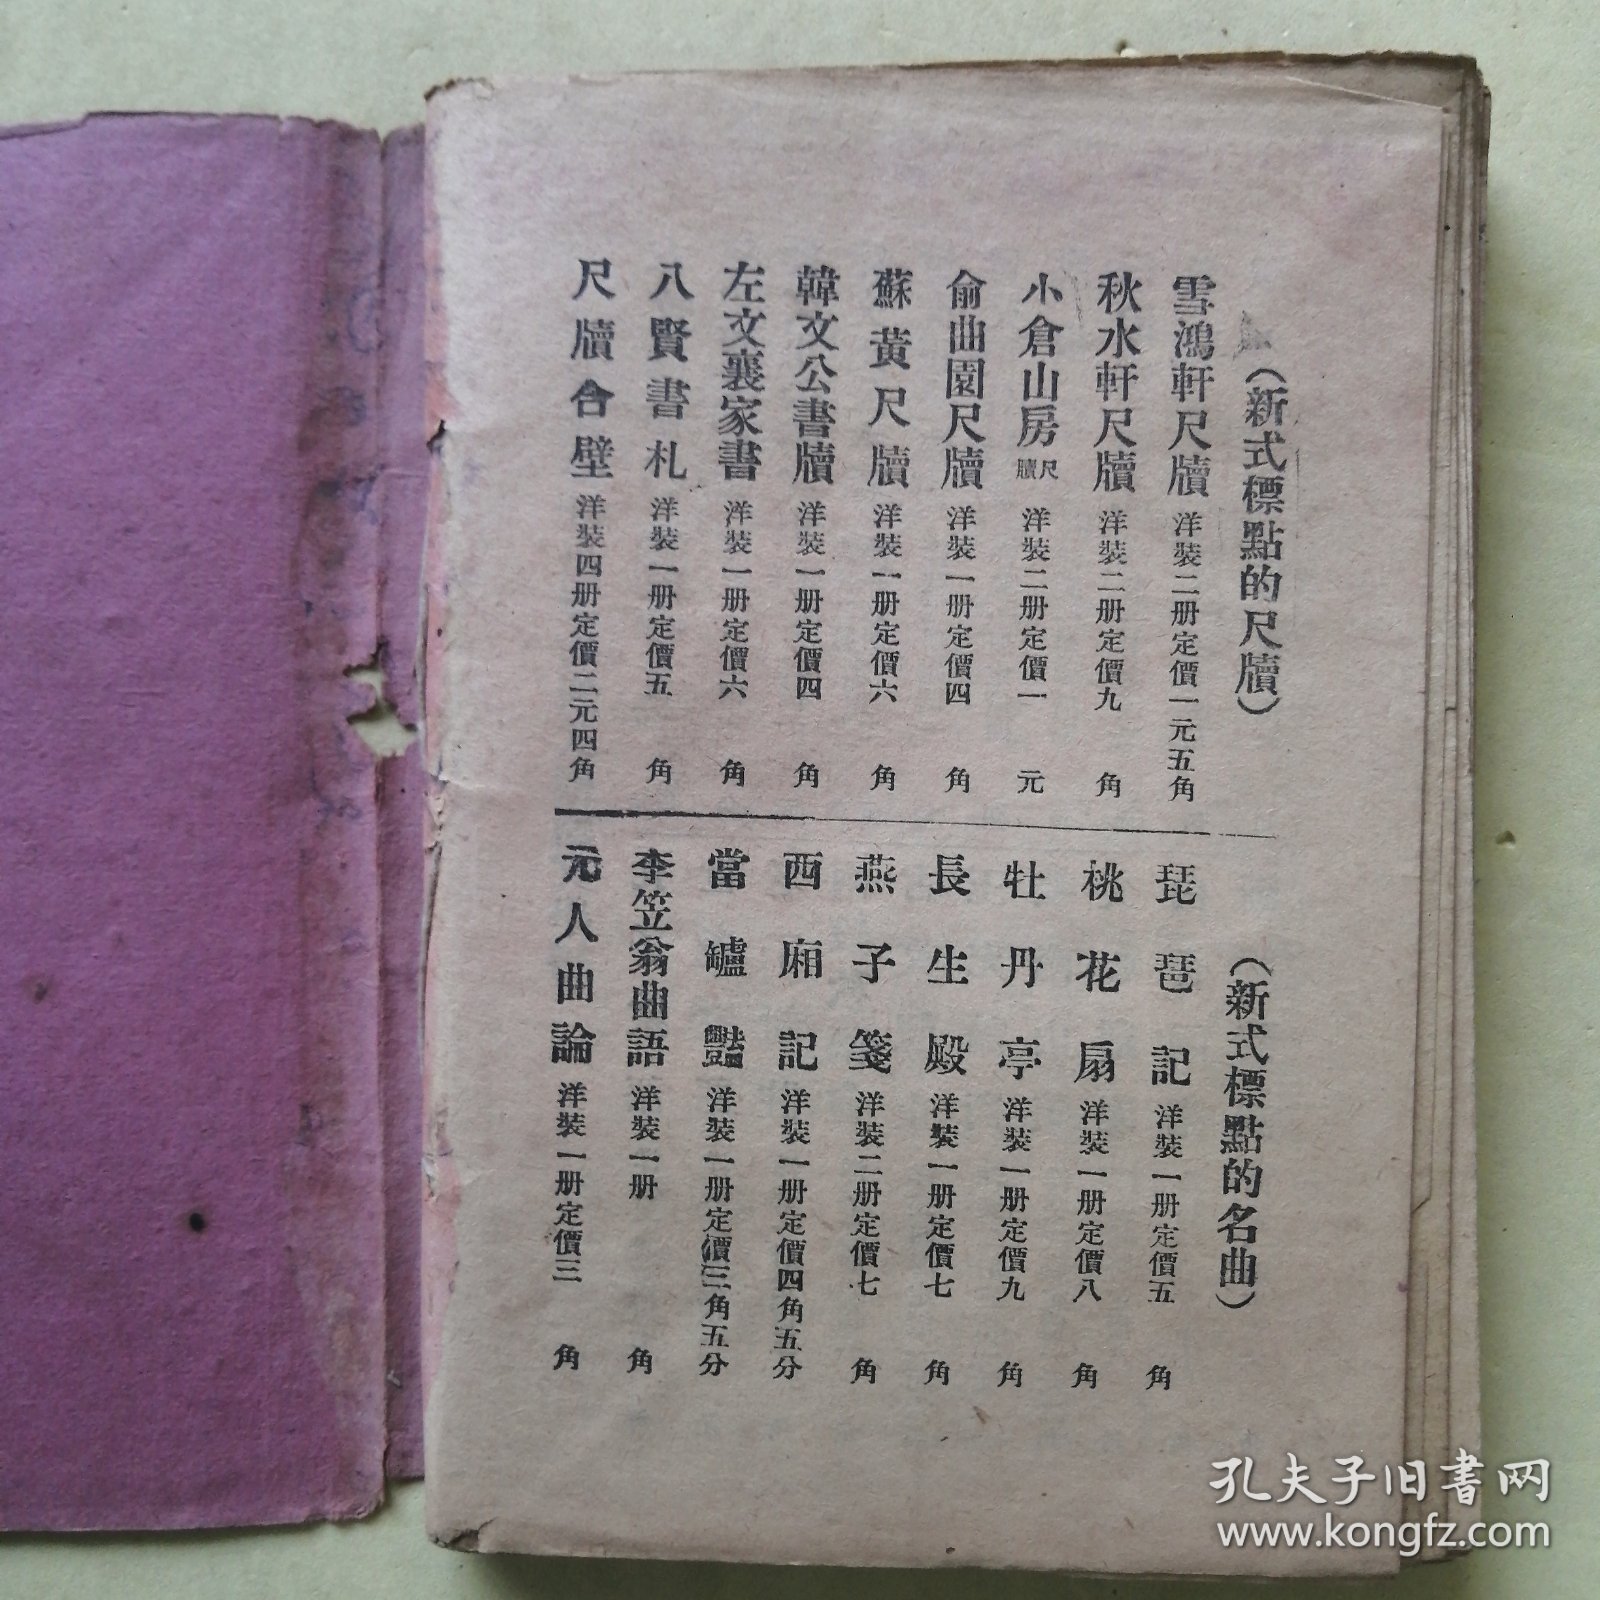 （新式標點的尺牘）
雪鴻軒尺牘 洋裝二册定價一元五角
秋水軒尺牘 洋裝二册定價九角
小倉山房尺牘 洋裝二册定價一元
俞曲園尺牘 洋裝一册定價四角
蘇黃尺牘 洋裝一册定價六角
韓文公書牘 洋裝一册定價四角
左文襄家書 洋裝一册定價六角
八賢書札 洋裝一册定價五角
尺牘合璧 洋裝四册定價二元四角
（新式標點的名曲）
琵琶記 洋裝一册定價五角
桃花扇 洋裝一册定價八角
牡丹亭 洋裝一册定價九角
長生殿 洋裝一册定價七角
燕子箋 洋裝二册定價七角
西廂記 洋裝一册定價四角五分
當罏豔 洋裝一册定價三角五分
李笠翁曲語 洋裝一册 角
元人曲論 洋裝一册定價三角
孔夫子旧书网
www.kongfz.com